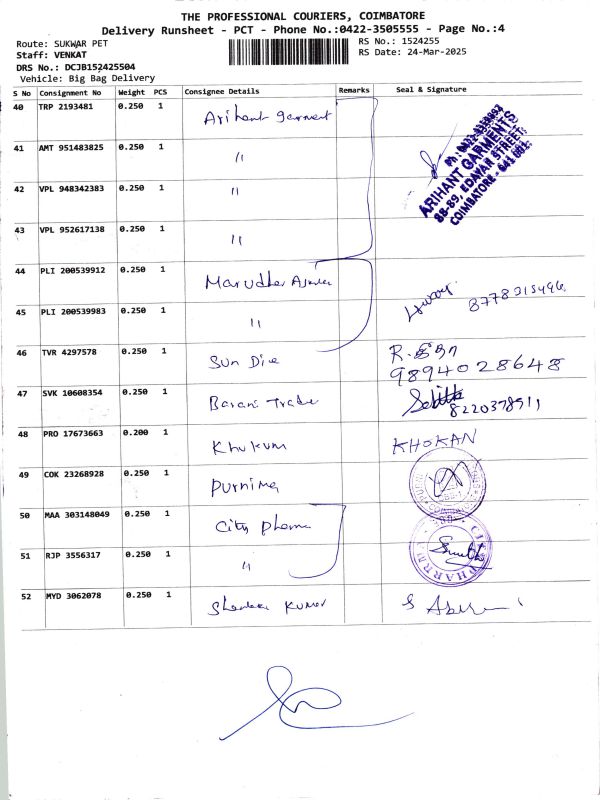 THE PROFESSIONAL COURIERS, COIMBATORE
Delivery Runsheet - PCT - Phone No.:0422-3505555 - Page No.:4
Route: SUKWAR PET
RS No.: 1524255
Staff: VENKAT
RS Date: 24-Mar-2025
DRS No.: DCJB152425504
Vehicle: Big Bag Delivery
S No Consignment No Weight PCS Consignee Details Remarks Seal & Signature
40 TRP 2193481 0.250 1 Arihant garment
ARIHANT GARMENTS
88-89, EDAYAR STREET,
COIMBATORE - 641 001.
41 AMT 951483825 0.250 1 "
42 VPL 948342383 0.250 1 "
43 VPL 952617138 0.250 1 "
44 PLI 200539912 0.250 1 Marudhar
45 PLI 200539983 0.250 1 " 8778315496
46 TVR 4297578 0.250 1 Sun Die R.
9894028648
47 SVK 10608354 0.250 1 Barani Trade
8220378911
48 PRO 17673663 0.200 1 Khukum KHOKAN
49 COK 23268928 0.250 1 Purnima
50 MAA 303148049 0.250 1 City Pharma
51 RJP 3556317 0.250 1 "
52 MYD 3062078 0.250 1 Kumar S